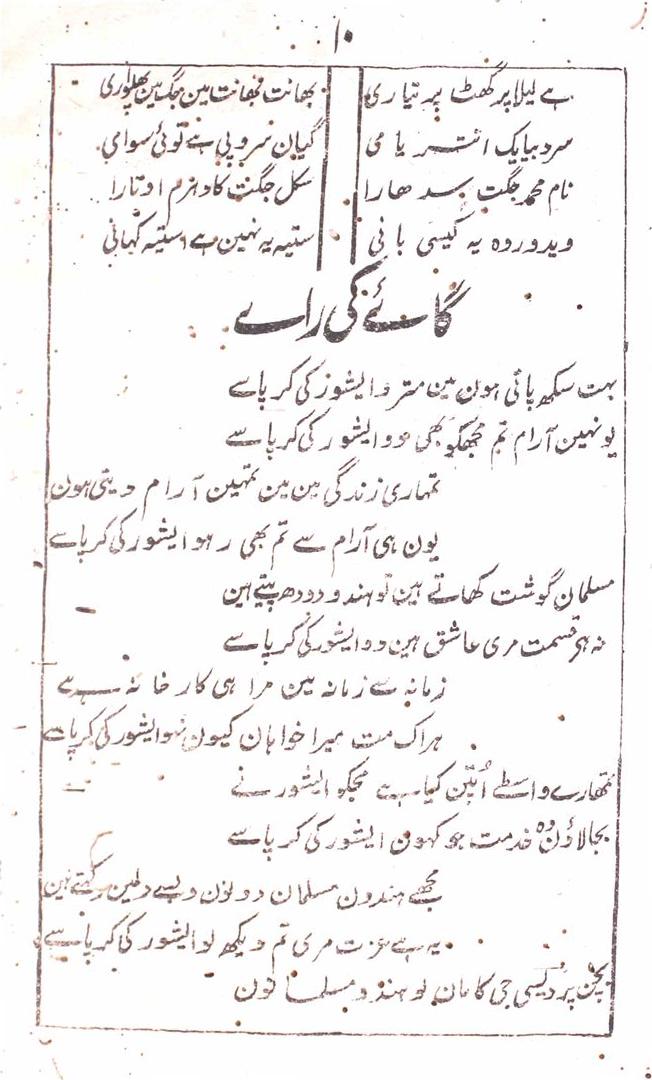 ۱۰
ہے لیلا پرگھٹ پر تیاری بھانت بھانت مین جگ مین پھلواری
سرد بیاپک انتر یامی گیان سروپی ہے توئی سوامی
نام محمد جگت سدھارا سکل جگت کا دہرم اوتارا
وید وردہ یہ کیسی بانی ستیہ یہ نہین ہے استیہ کہانی
گائے کی رائے
بہت سکھ پائی ہون مین متر و ایشور کی کرپا سے
یونہین آرام تم مجھکو بھی دو وایشور کی کرپا سے
تمہاری زندگی مین مین تمہین آرام دیتی ہون
یون ہی آرام سے تم بھی رہو ایشور کی کرپا سے
مسلمان گوشت کھاتے ہین تو ہندو دودھ پیتے ہین
زہے قسمت مری عاشق ہین دو ایشور کی کرپا سے
زمانہ سے زمانہ مین مرا ہی کارخانہ ہے
ہراک مت میرا خواہان کیون نہو ایشور کی کرپا سے
تمھارے واسطے اُتپن کیا ہے مجکو ایشور نے
بجا لاؤن وہ خدمت جو کہون ایشور کی کرپا سے
مجھے ہندون مسلمان دونون ویسے دلمین رکھتے ہین
یہ ہے عزت مری تم دیکھ لو ایشور کی کرپا سے
بچن پردیسی جی کا مان لو ہندو مسلمانون